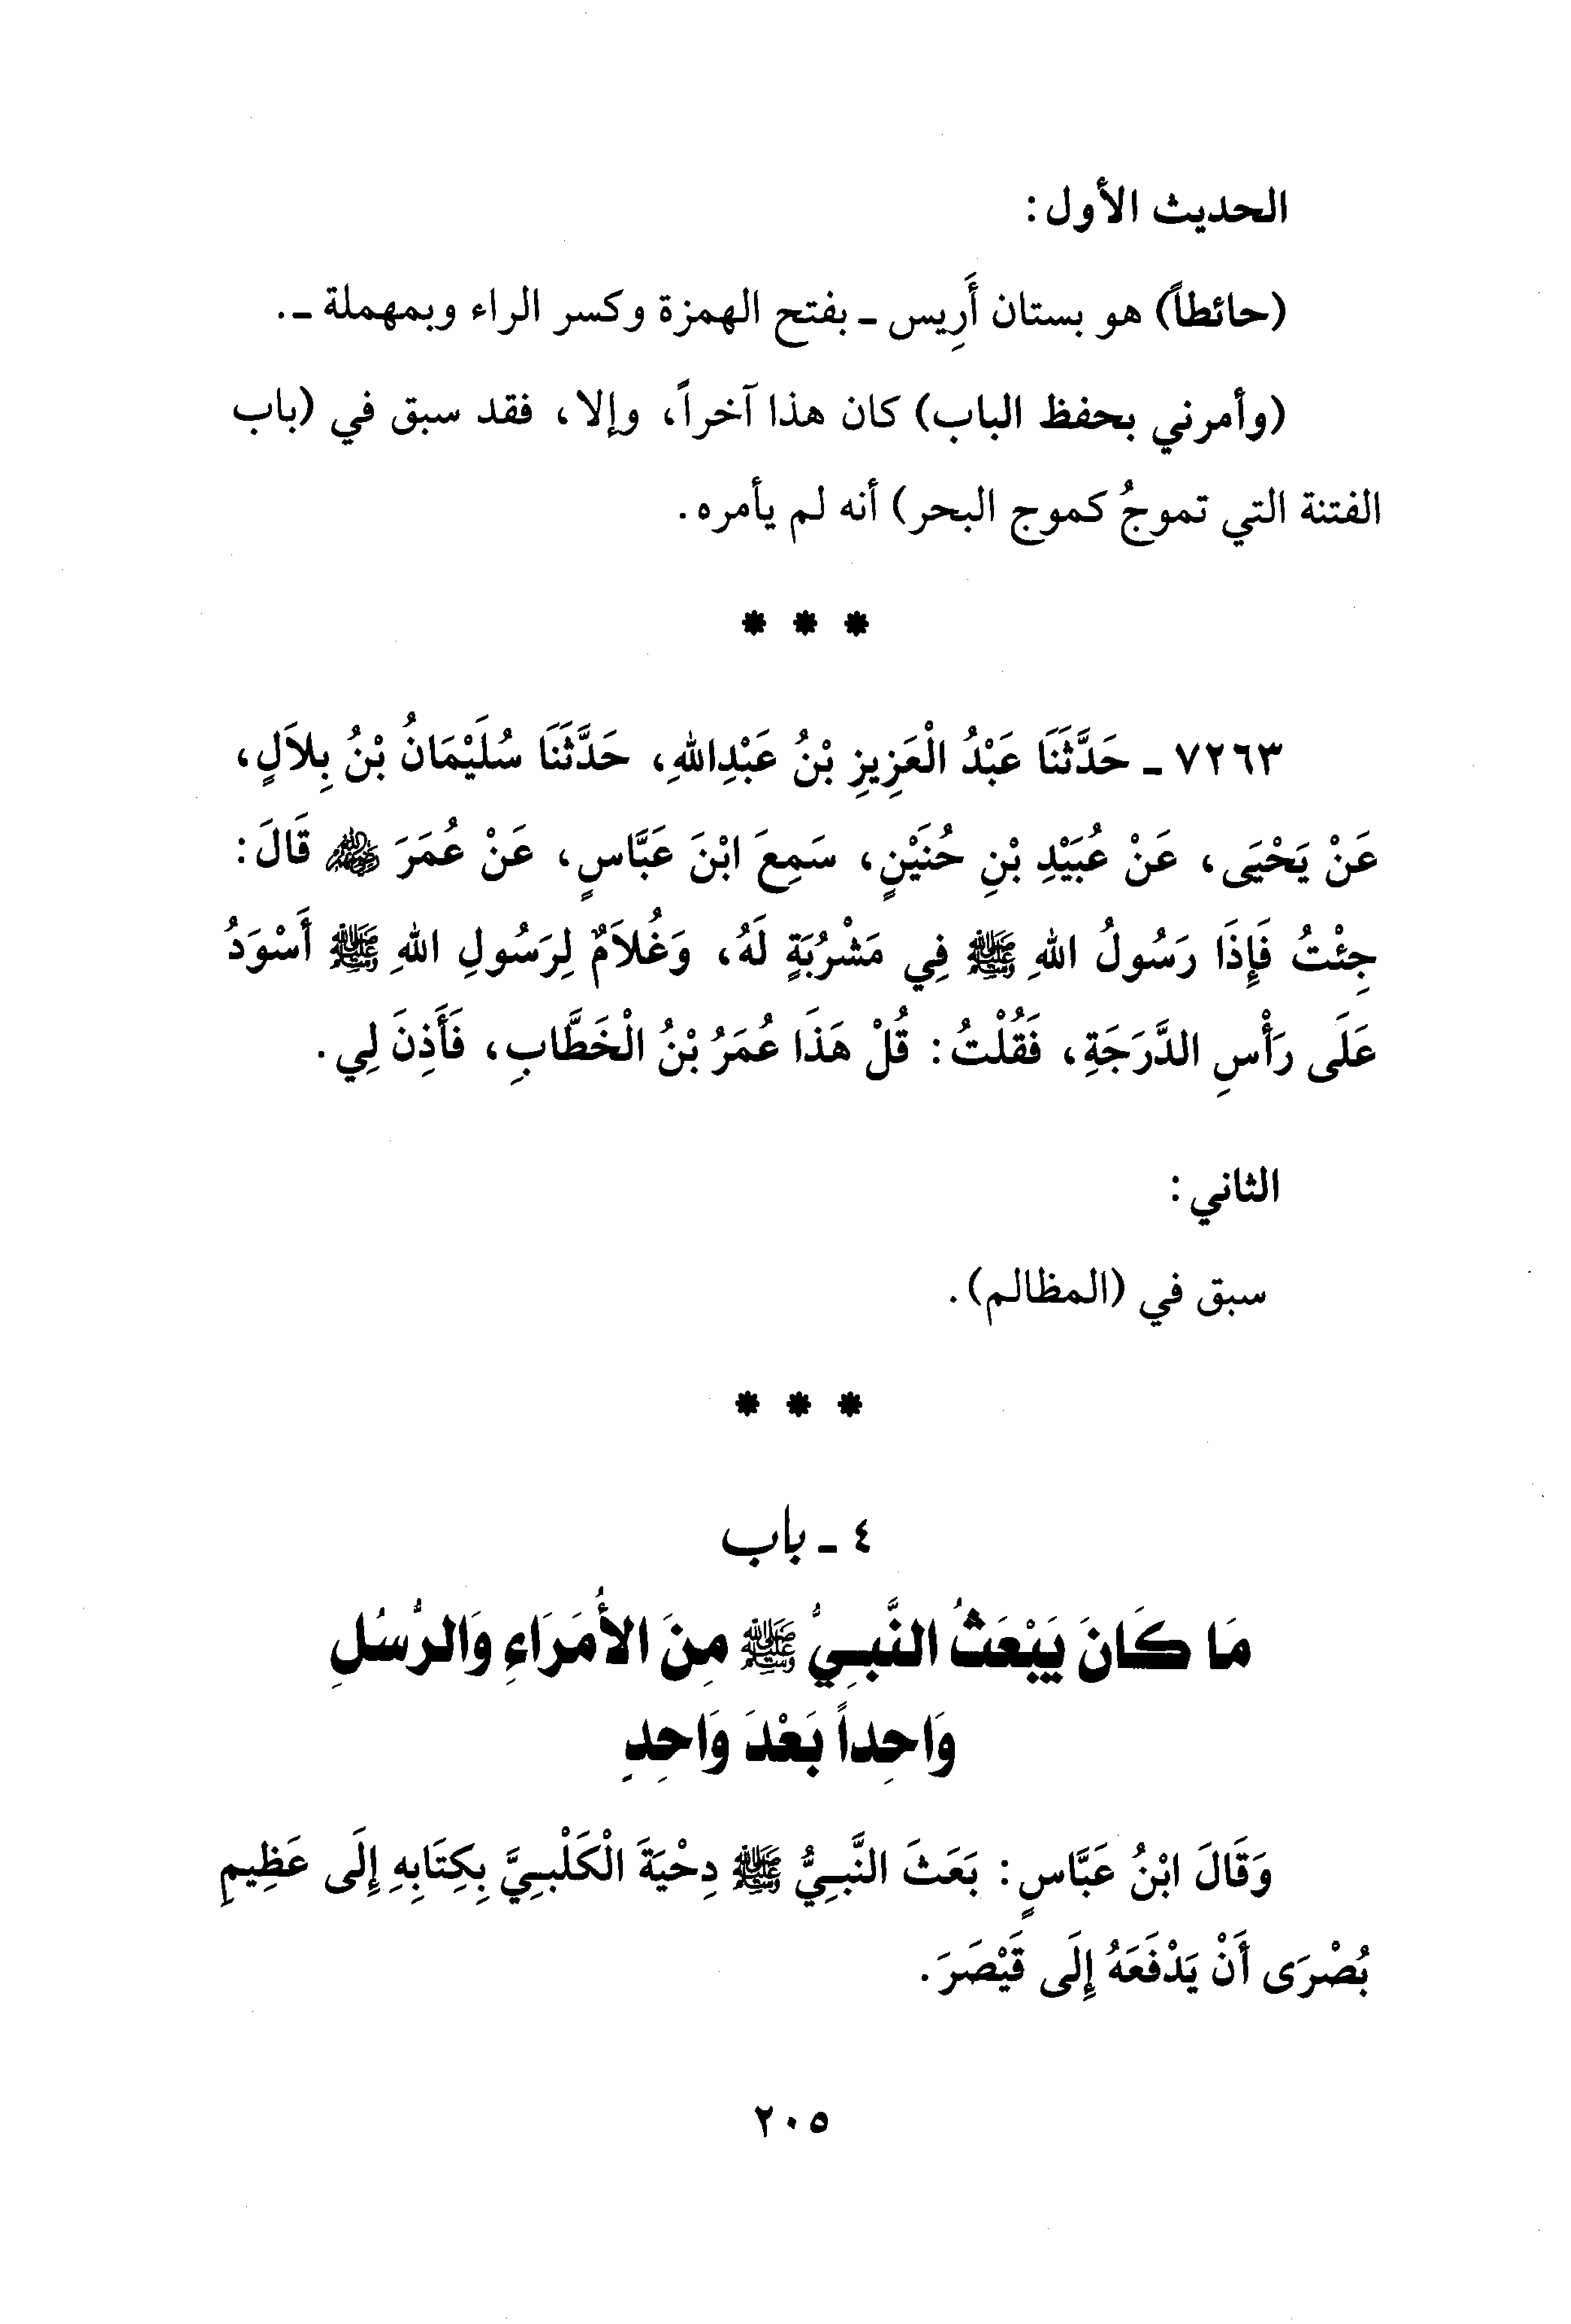 الحديث الأول:
(حائطاً) هو بستان أَرِيس ـ بفتح الهمزة وكسر الراء وبمهملة ـ.
(وأمرني بحفظ الباب) كان هذا آخراً، وإلا، فقد سبق في (باب
الفتنة التي تموجُ كموج البحر) أنه لم يأمره.
* * *
٧٢٦٣ ـ حَدَّثَنَا عَبْدُ الْعَزِيزِ بْنُ عَبْدِاللهِ، حَدَّثَنَا سُلَيْمَانُ بْنُ بِلاَلٍ،
عَنْ يَحْيَى، عَنْ عُبَيْدِ بْنِ حُنَيْنٍ، سَمِعَ ابْنَ عَبَّاسٍ، عَنْ عُمَرَ رضي الله عنه قَالَ:
جِئْتُ فَإِذَا رَسُولُ اللهِ ﷺ فِي مَشْرُبَةٍ لَهُ، وَغُلاَمٌ لِرَسُولِ اللهِ ﷺ أَسْوَدُ
عَلَى رَأْسِ الدَّرَجَةِ، فَقُلْتُ: قُلْ هَذَا عُمَرُ بْنُ الْخَطَّابِ، فَأَذِنَ لِي.
الثاني:
سبق في (المظالم).
* * *
٤ ـ باب
مَا كَانَ يَبْعَثُ النَّبِيُّ ﷺ مِنَ الأُمَرَاءِ وَالرُّسُلِ
وَاحِداً بَعْدَ وَاحِدٍ
وَقَالَ ابْنُ عَبَّاسٍ: بَعَثَ النَّبِيُّ ﷺ دِحْيَةَ الْكَلْبِيَّ بِكِتَابِهِ إِلَى عَظِيمِ
بُصْرَى أَنْ يَدْفَعَهُ إِلَى قَيْصَرَ.
٢٠٥